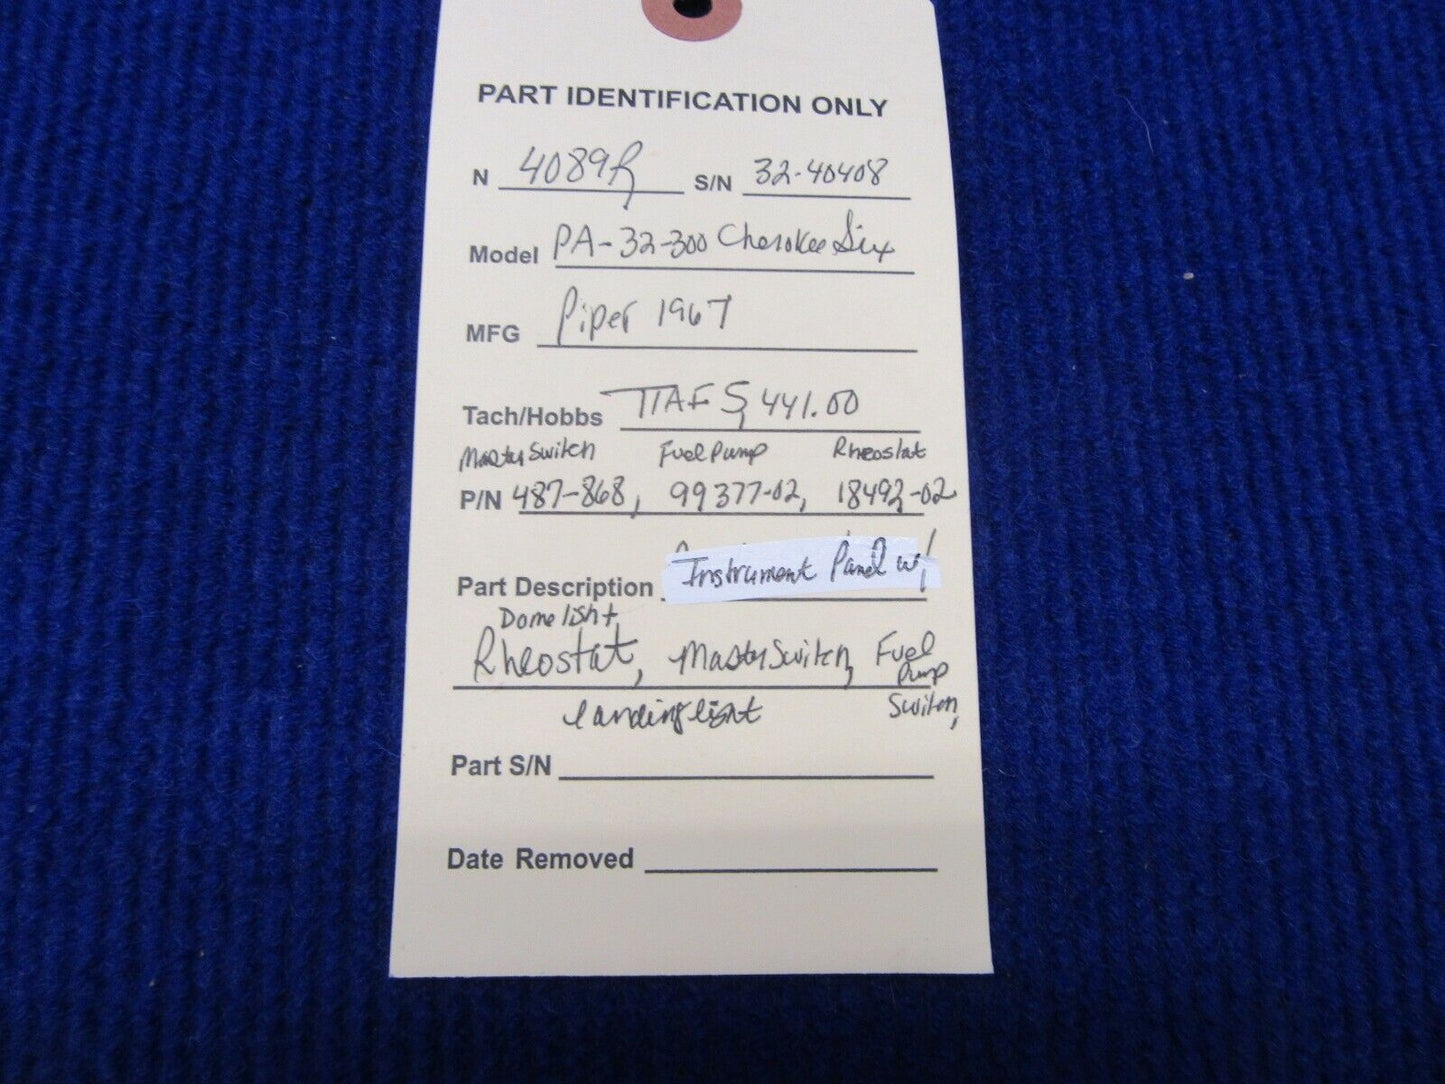 PART IDENTIFICATION ONLY
N 4089R S/N 32-40408
Model PA-32-300 Cherokee Six
MFG Piper 1967
Tach/Hobbs TTAF 5,441.00
Master Switch Fuel Pump Rheostat
P/N 487-868, 99377-02, 18492-02
Part Description Instrument Panel w/
Dome light
Rheostat, Master Switch, Fuel Pump
landing light Switch,
Part S/N
Date Removed